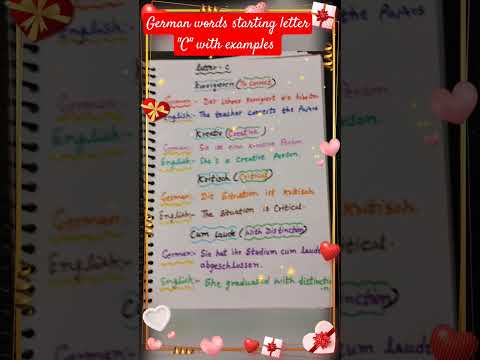 German words starting letter
"C" with examples
Letter - C
Korrigieren (To Correct)
German:- Der Lehrer korrigiert die Arbeiten.
English:- The teacher corrects the
Kreativ (Creative)
German:- Sie ist eine kreative Person.
English:- She's a Creative Person.
Kritisch (Critical)
German:- Die Situation ist kritisch.
English:- The Situation is Critical.
Cum Laude (With Distinction)
German:- Sie hat ihr Studium cum laude
abgeschlossen.
English:- She graduated with distinction